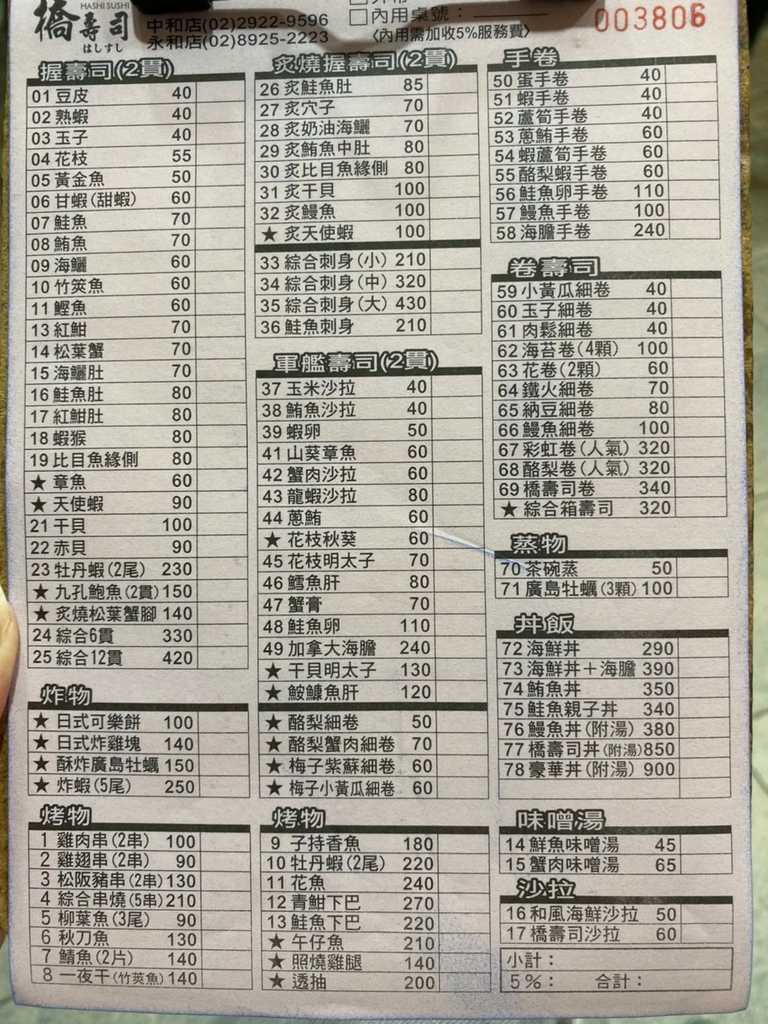 HASHI SUSHI
橋壽司
はしすし
中和店(02)2922-9596
永和店(02)8925-2223
□內用桌號：
〈內用需加收5%服務費〉
003806
握壽司(2貫)
01 豆皮 40
02 熟蝦 40
03 玉子 40
04 花枝 55
05 黃金魚 50
06 甘蝦(甜蝦) 60
07 鮭魚 70
08 鮪魚 70
09 海鱺 60
10 竹筴魚 60
11 鰹魚 60
13 紅魽 70
14 松葉蟹 70
15 海鱺肚 70
16 鮭魚肚 80
17 紅魽肚 80
18 蝦猴 80
19 比目魚緣側 80
★ 章魚 60
★ 天使蝦 90
21 干貝 100
22 赤貝 90
23 牡丹蝦(2尾) 230
★ 九孔鮑魚(2貫) 150
★ 炙燒松葉蟹腳 140
24 綜合6貫 330
25 綜合12貫 420
炸物
★ 日式可樂餅 100
★ 日式炸雞塊 140
★ 酥炸廣島牡蠣 150
★ 炸蝦(5尾) 250
烤物
1 雞肉串(2串) 100
2 雞翅串(2串) 90
3 松阪豬串(2串) 130
4 綜合串燒(5串) 210
5 柳葉魚(3尾) 90
6 秋刀魚 130
7 鯖魚(2片) 140
8 一夜干(竹筴魚) 140
炙燒握壽司(2貫)
26 炙鮭魚肚 85
27 炙穴子 70
28 炙奶油海鱺 70
29 炙鮪魚中肚 80
30 炙比目魚緣側 80
31 炙干貝 100
32 炙鰻魚 100
★ 炙天使蝦 100
33 綜合刺身(小) 210
34 綜合刺身(中) 320
35 綜合刺身(大) 430
36 鮭魚刺身 210
軍艦壽司(2貫)
37 玉米沙拉 40
38 鮪魚沙拉 40
39 蝦卵 50
41 山葵章魚 60
42 蟹肉沙拉 60
43 龍蝦沙拉 80
44 蔥鮪 60
★ 花枝秋葵 60
45 花枝明太子 70
46 鱈魚肝 80
47 蟹膏 70
48 鮭魚卵 110
49 加拿大海膽 240
★ 干貝明太子 130
★ 鮟鱇魚肝 120
★ 酪梨細卷 50
★ 酪梨蟹肉細卷 70
★ 梅子紫蘇細卷 60
★ 梅子小黃瓜細卷 60
烤物
9 子持香魚 180
10 牡丹蝦(2尾) 220
11 花魚 240
12 青魽下巴 270
13 鮭魚下巴 220
★ 午仔魚 210
★ 照燒雞腿 140
★ 透抽 200
手卷
50 蛋手卷 40
51 蝦手卷 40
52 蘆筍手卷 40
53 蔥鮪手卷 60
54 蝦蘆筍手卷 60
55 酪梨蝦手卷 60
56 鮭魚卵手卷 110
57 鰻魚手卷 100
58 海膽手卷 240
卷壽司
59 小黃瓜細卷 40
60 玉子細卷 40
61 肉鬆細卷 40
62 海苔卷(4顆) 100
63 花卷(2顆) 60
64 鐵火細卷 70
65 納豆細卷 80
66 鰻魚細卷 100
67 彩虹卷(人氣) 320
68 酪梨卷(人氣) 320
69 橋壽司卷 340
★ 綜合箱壽司 320
蒸物
70 茶碗蒸 50
71 廣島牡蠣(3顆) 100
丼飯
72 海鮮丼 290
73 海鮮丼＋海膽 390
74 鮪魚丼 350
75 鮭魚親子丼 340
76 鰻魚丼(附湯) 380
77 橋壽司丼(附湯) 850
78 豪華丼(附湯) 900
味噌湯
14 鮮魚味噌湯 45
15 蟹肉味噌湯 65
沙拉
16 和風海鮮沙拉 50
17 橋壽司沙拉 60
小計：
5%： 合計：